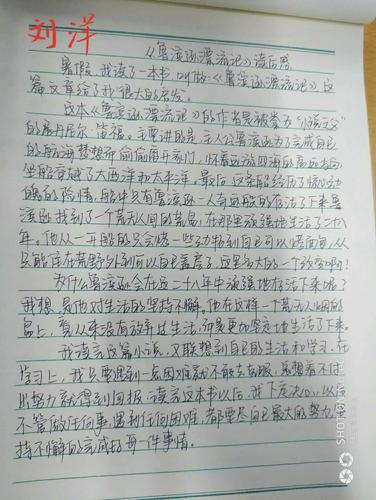 刘洋
《鲁滨逊漂流记》读后感
暑假，我读了一本书，叫做《鲁滨逊漂流记》这
篇文章给了我很大的启发。
这本《鲁滨逊漂流记》的作者是被誉为"小说之父"
的丹尼尔·笛福。主要讲的是：主人公鲁滨逊为了完成自己
的航海梦想而偷偷离开家门，怀着远游四海的高远志向
坐船穿越了大西洋和太平洋。最后，这条船经历了惊心动
魄的险情，船中只有鲁滨逊一人奇迹般的存活了下来鲁
滨逊找到了一个荒无人间的荒岛，在那里顽强地生活了二十八
年。他从一开始的只会
只能住在荒野外到可以自己盖房了，这是多大的一个改变啊！
为什么鲁滨逊会在这二十八年中顽强地存活下来呢？
我想，是他对生活的坚持不懈。他在这样一个荒无人烟的
岛上，看从来没有放弃过生活，而是更加坚定地生活了下来。
我读完这篇小说，又联想到自己的生活和学习，在
学习上，我只要遇到一点困难就不敢去克服，总想着不付
出努力就得到回报。读完这本书以后，我下定决心，以后
不管做任何事，遇到任何困难，都要尽自己最大的努力，坚
持不懈的完成好每一件事情。
SHOT ON